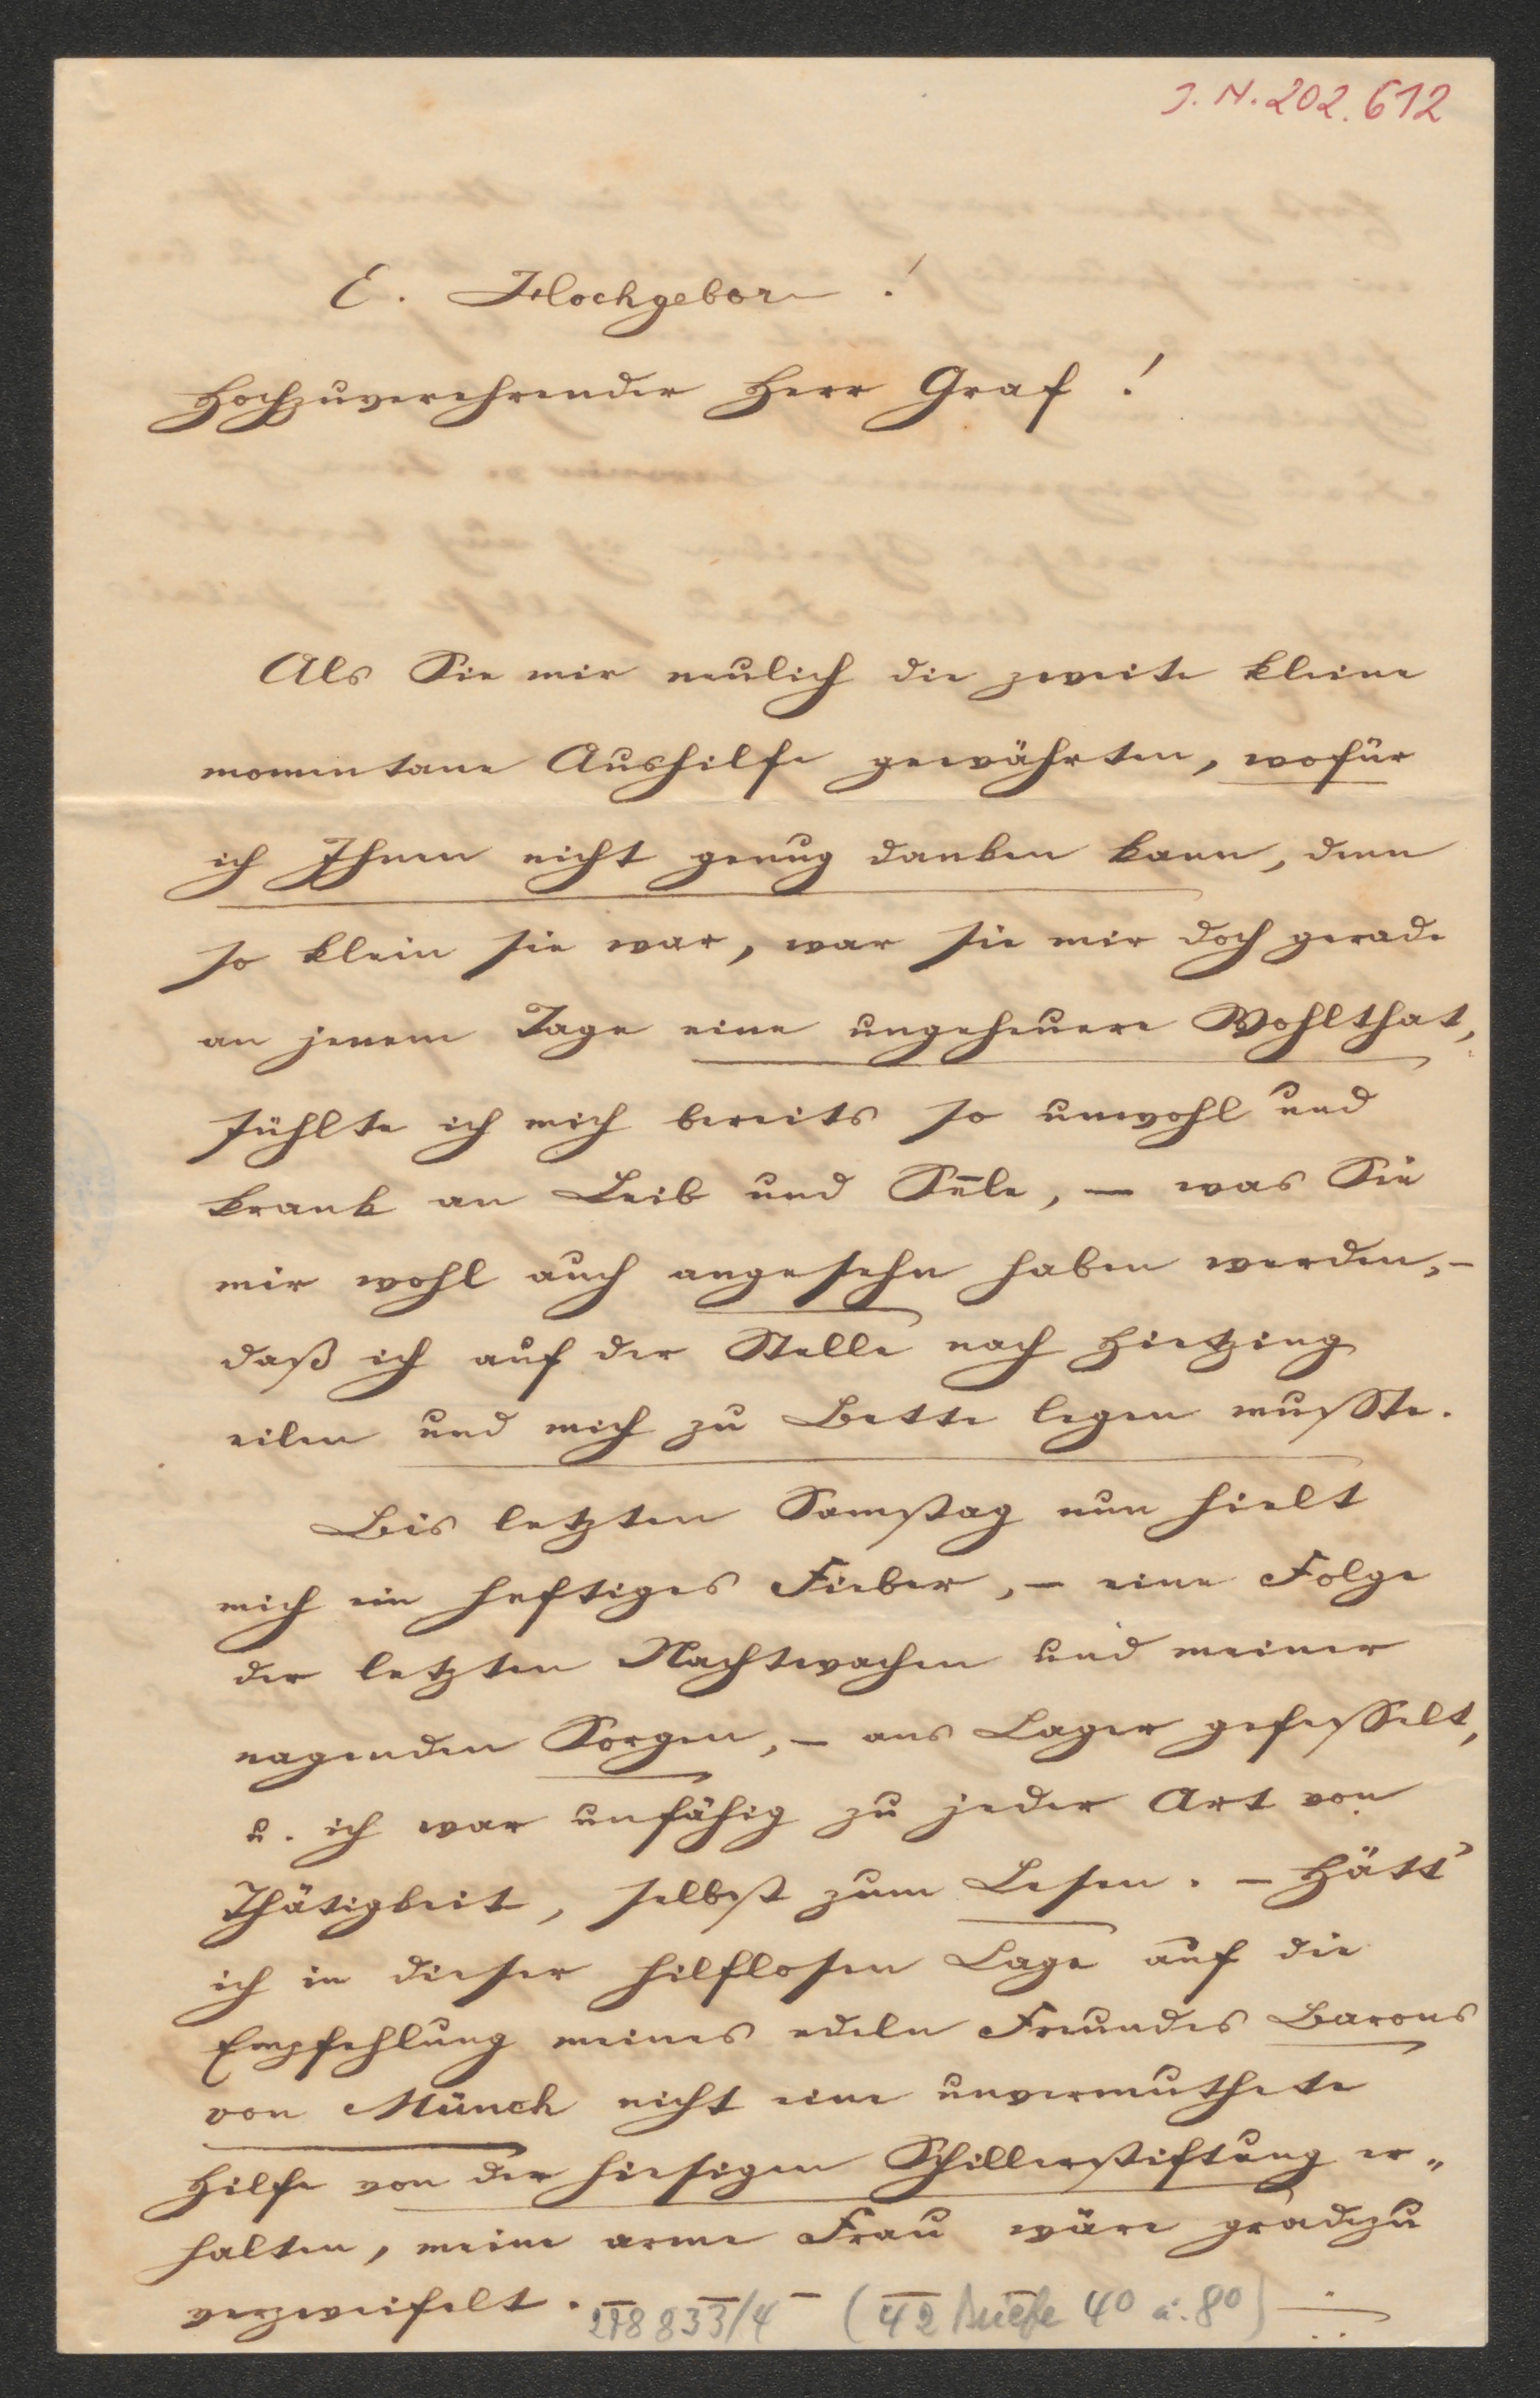 J. N. 202.612
E. Hochgeborn !
Hochzuverehrender Herr Graf !
Als Sie mir neulich die zweite kleine
momentane Aushilfe gewährten, wofür
ich Ihnen nicht genug danken kann, denn
so klein sie war, war sie mir doch gerade
an jenem Tage eine ungeheuere Wohlthat,
fühlte ich mich bereits so unwohl und
krank an Leib und Sele, – was Sie
mir wohl auch angesehn haben werden, –
daß ich auf der Stelle nach Hietzing
eilen und mich zu Bette legen musste.
Bis letzten Samstag nun hielt
mich ein heftiges Fieber, – eine Folge
der letzten Nachtwachen und meiner
nagenden Sorgen, – ans Lager gefesselt,
u. ich war unfähig zu jeder Art von
Thätigkeit, selbst zum Lesen. – Hätt'
ich in dieser hilflosen Lage auf die
Empfehlung meines edeln Freundes Barons
von Münch nicht eine unvermuthete
Hilfe von der hiesigen Schillerstiftung er„
halten, meine arme Frau wäre gradezu
verzweifelt. –
278833/4 (42 Briefe 4° u. 8°)